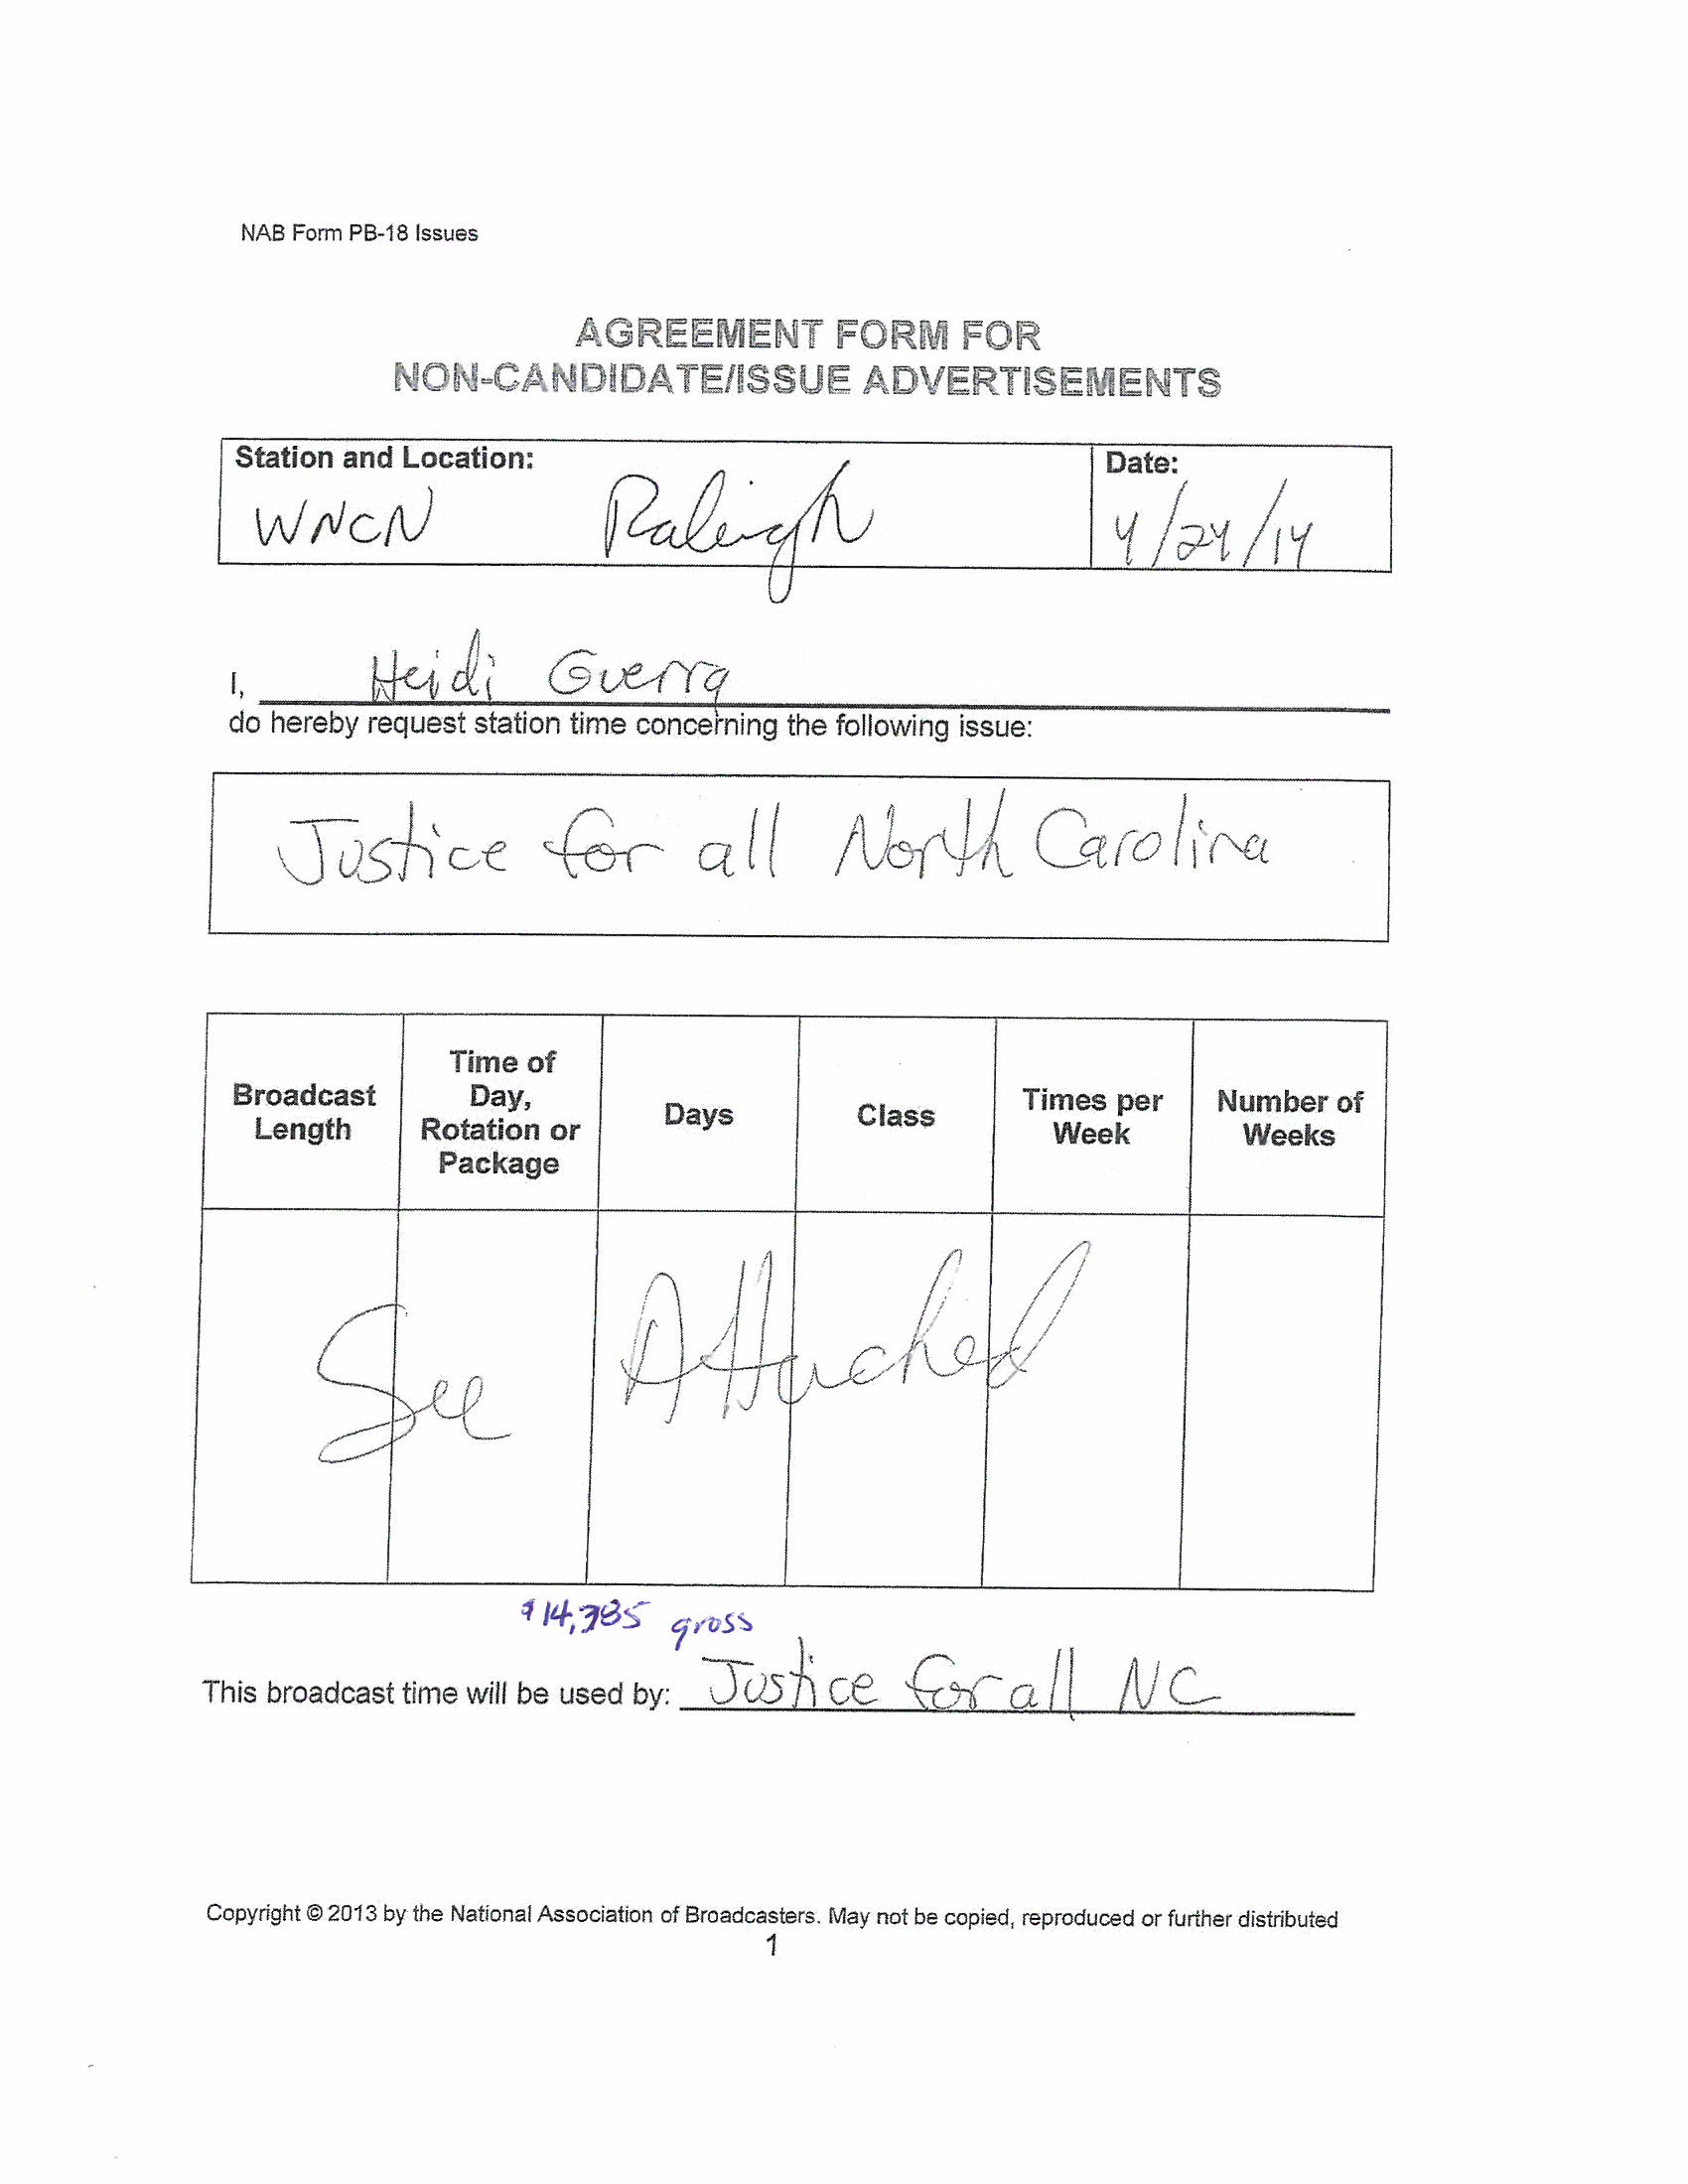 NAB Form PB-18 Issues
AGREEMENT FORM FOR
NON-CANDIDATE/ISSUE ADVERTISEMENTS
Station and Location:
WNCN Raleigh
Date:
4/24/14
I, Heidi Guerra
do hereby request station time concerning the following issue:
Justice for all North Carolina
Broadcast Length
Time of Day, Rotation or Package
Days
Class
Times per Week
Number of Weeks
See Attached
$14,385 gross
This broadcast time will be used by: Justice for all NC
Copyright © 2013 by the National Association of Broadcasters. May not be copied, reproduced or further distributed
1